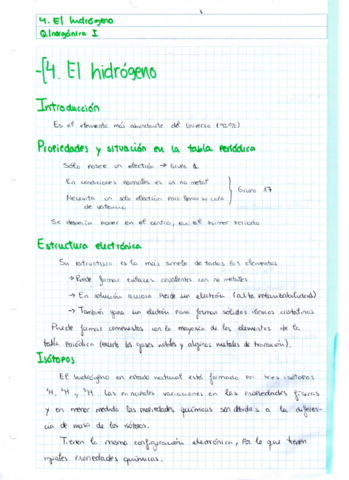 4. El hidrógeno
Q. Inorgánica I
4. El hidrógeno
Introducción
Es el elemento más abundante del Universo (92%)
Propiedades y situación en la tabla periódica
Sólo posee un electrón → Grupo 1
En condiciones normales es un no metal
Necesita un solo electrón para llenar su capa
de valencia
Grupo 17
Se debería poner en el centro, en el primer periodo
Estructura electrónica
Su estructura es la más sencilla de todos los elementos
→ Puede formar enlaces covalentes con no metales.
→ En solución acuosa pierde un electrón (alta
→ También gana un electrón para formar sólidos iónicos cristalinos
Puede formar compuestos con la mayoría de los elementos de la
tabla periódica (excepto los gases nobles y algunos metales de transición).
Isótopos
El hidrógeno en estado natural está formado por tres isótopos
¹H, ²H, ³H. Las principales variaciones en las propiedades físicas
y en menor medida las propiedades químicas son debidas a la diferen-
cia de masa de los isótopos.
Tienen la misma configuración electrónica, por lo que tienen
iguales propiedades químicas.